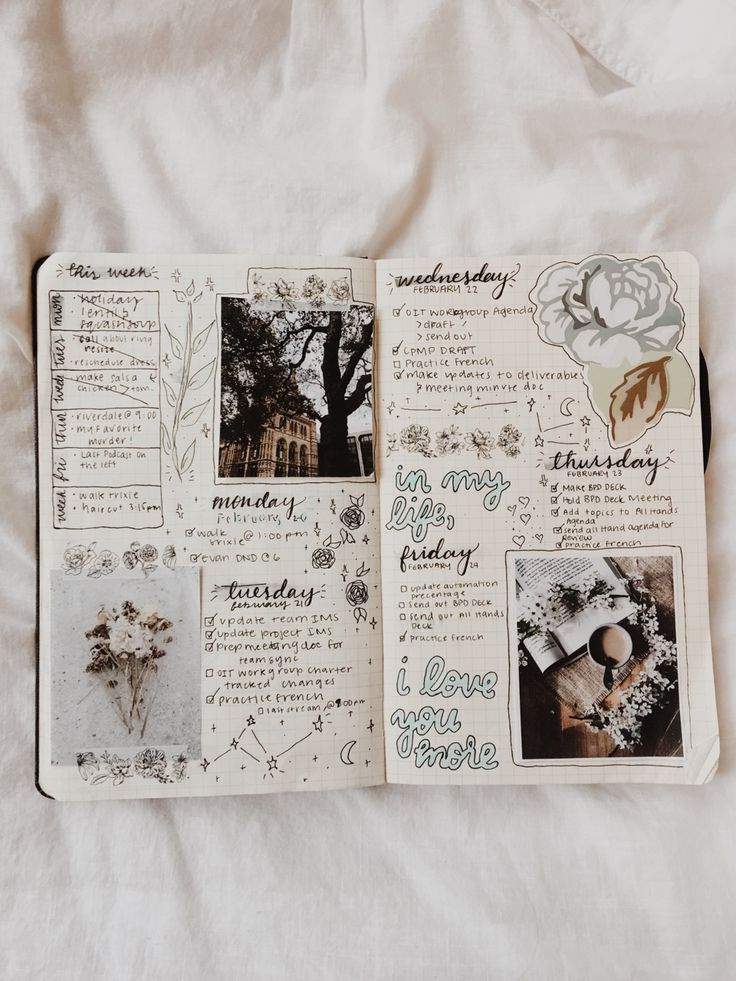 this week
mon
holiday
lentil &
squash soup
tues
call about ring
resize
reschedule dress
wed
make salsa
chicken > tom
thur
riverdale @ 9:00
my favorite
murder!
fri
Last Podcast on
the left
week
walk trixie
haircut 3:15pm
monday
February 20
walk
trixie @ 1:00pm
Evan DND @ 6
tuesday
february 21
update team IMS
update project IMS
prep meeting doc for
team sync
OIT workgroup charter
tracked changes
practice french
last stream @ 9:00pm
wednesday
FEBRUARY 22
OIT Workgroup Agenda
> draft
> send out
CPMP DRAFT
Practice French
make updates to deliverables
& meeting minute doc
in my
life,
friday
FEBRUARY 24
update automation
precentage
send out BPD DECK
Send out All Hands
Deck
practice french
i love
you
more
thursday
FEBRUARY 23
Make BPD DECK
Hold BPD Deck Meeting
Add topics to All Hands
Agenda
send all Hand agenda for
Review
practice French